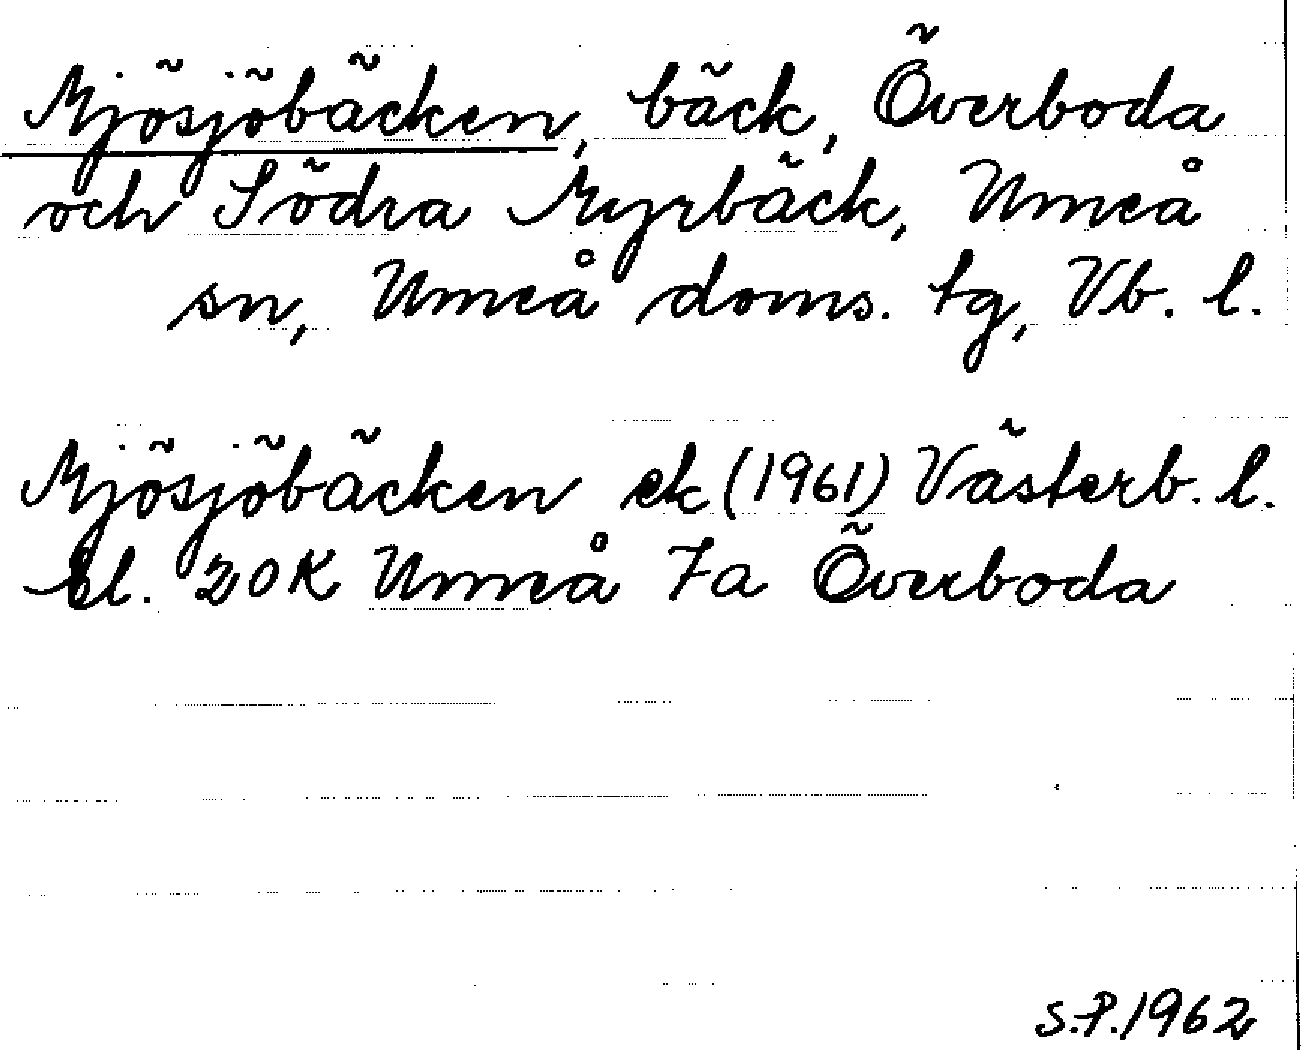 Mjösjöbäcken, bäck, Överboda
och Södra Myrbäck, Umeå
sn, Umeå doms. tg, Vb. l.
Mjösjöbäcken ek (1961) Västerb. l.
bl. 20K Umeå 7a Överboda
S.P. 1962